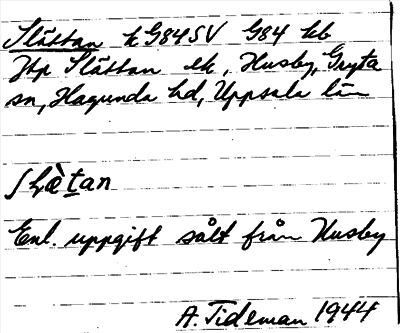 Slättan k G84SV G84 kb
Jtp Slättan ek, Husby, Gryta
sn, Hagunda hd, Uppsala län
slætan
Enl. uppgift sålt från Husby
A. Tideman 1944